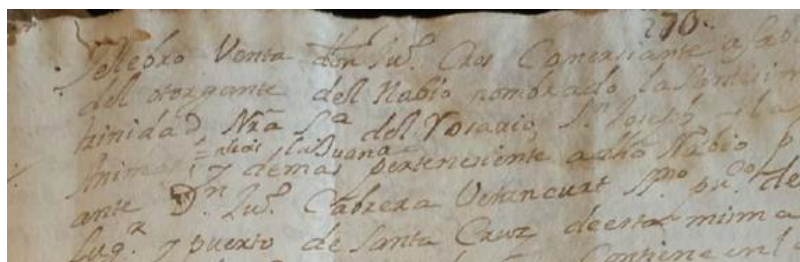 270.
Selebro Venta dn Juo. Cros Comersiante a fab
del otorgante del Nabio nombrado la Santisim
trinidad, Nra Sa. del Rosario, Sn. Joseph y la
Animas
y demas perteneciente a dho Nabio p
ante Dn. Juo. Cabrera Vetancurt SSno puco de
lugr. y puerto de Santa Cruz de esta misma
Contiene en l